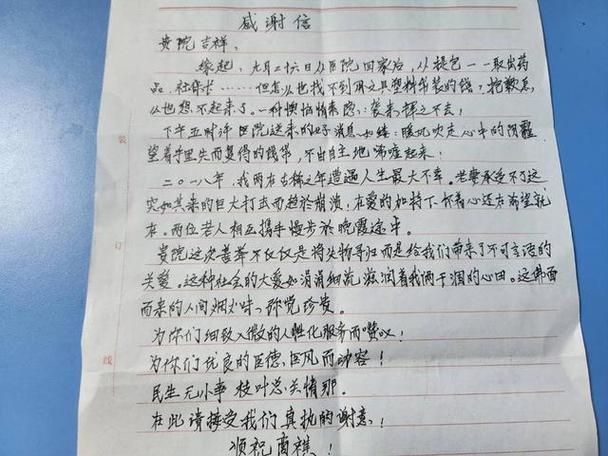 感谢信
贵院吉祥,
缘起,九月二十六日从医院回家后,从提包一一取出药
品、社保卡……但怎么也找不到用文具塑料吊装的钱,抱歉怎
么也想不起来了。一种懊恼情素隐隐袭来挥之不去!
下午五时许医院送来的好消息如缕缕暖风吹走心中的阴霾
望着手里失而复得的钱币,不由自主地唏嘘起来!
二〇一八年,我两在古稀之年遭遇人生最大不幸。老妻承受不了这
突如其来的巨大打击而趋於崩溃,在爱的加持下怀着心还在希望就
在。两位苦人相互携手慢步於晚霞途中。
贵院这次善举不仅仅是将失物寻归而是给我们带来了不可言语的
关爱。这种社会的大爱如涓涓细流滋润着我俩干涸的心田。这拂面
而来的人间烟火味、弥觉珍贵。
为你们细致入微的人性化服务而赞叹!
为你们优良的医德,医风而动容!
民生无小事枝叶总关情那。
在此请接受我们真执的谢意!
顺祝商祺!
装
订
线